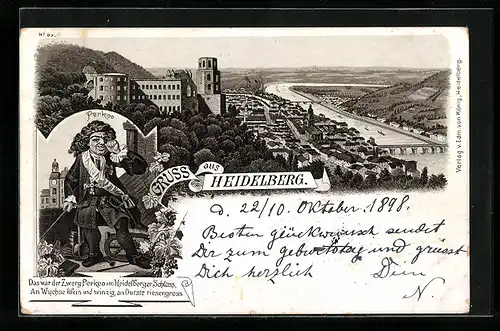 Nº 85.
Perkeo
GRUSS aus HEIDELBERG.
Das war der Zwerg Perkeo im Heidelberger Schloss,
An Wuchse klein und winzig, an Durste riesengross
d. 22/10. Oktober. 1898.
Besten glückwunsch sendet
Dir zum geburtstag und grüsst
Dich herzlich Dein
N.
Verlag v. Edm. von König, Heidelberg